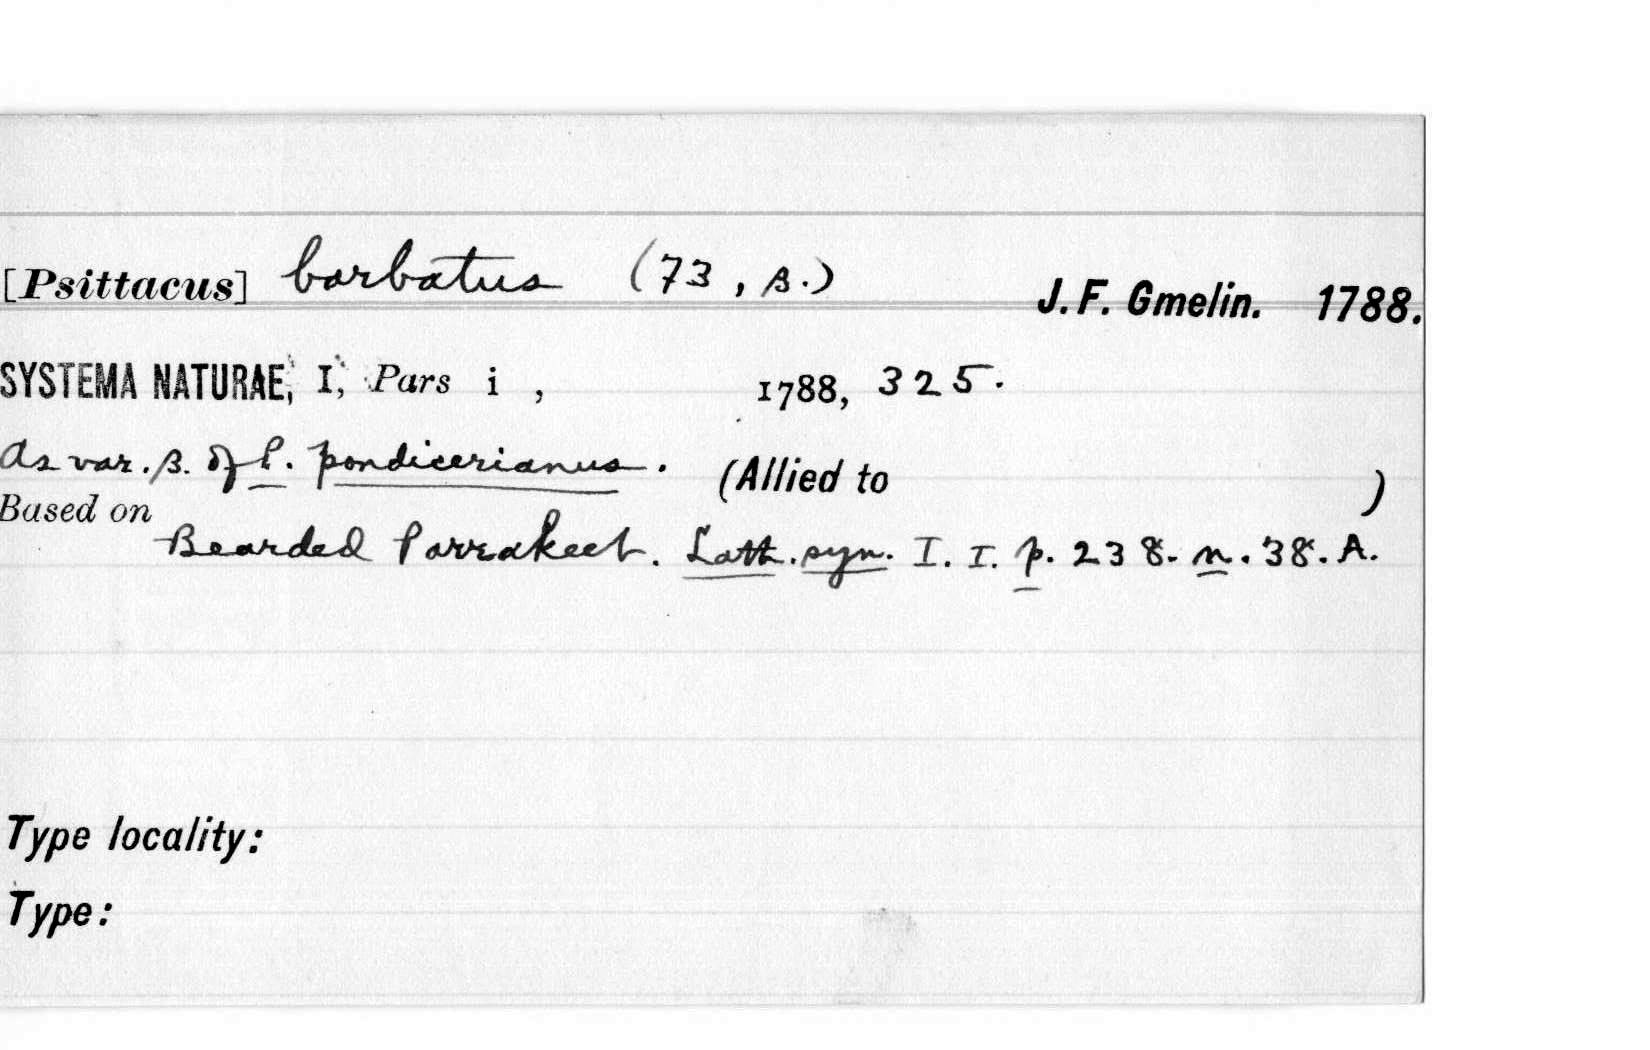 [Psittacus] barbatus (73, β.)
J. F. Gmelin. 1788.
SYSTEMA NATURAE, I, Pars i, 1788, 325.
As var. β. of P. pondicerianus. (Allied to )
Based on
Bearded Parrakeet. Lath. syn. I. I. p. 238. n. 38. A.
Type locality:
Type: